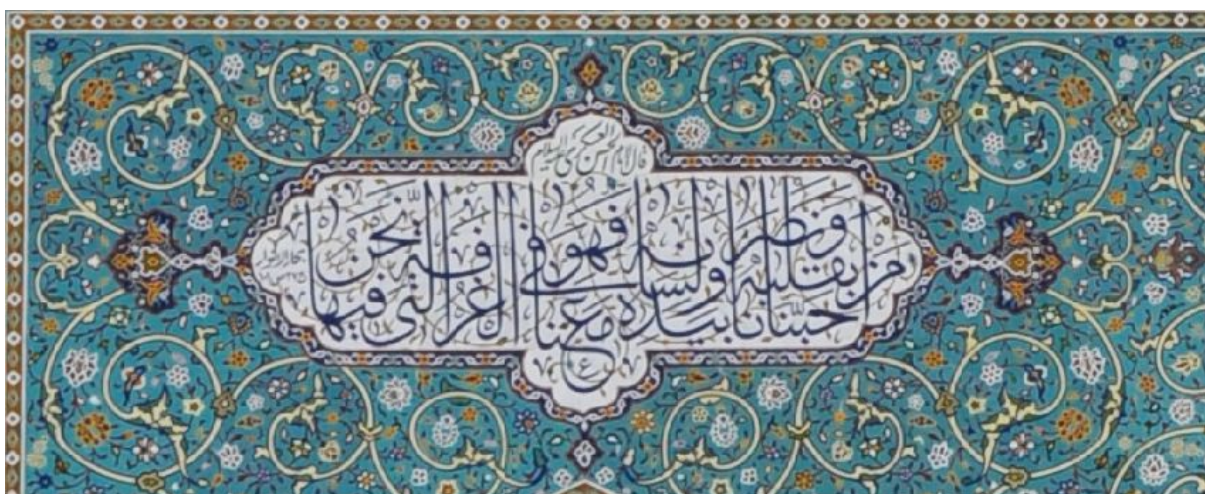 قال الامام الحسن علیه السلام
من احبّنا بقلبه ونصرنا بیده ولسانه فهو معنا فی الغرفة التّی نحن فیها